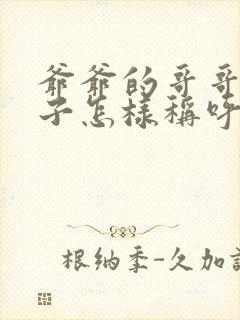 爺爺的哥哥
子怎樣稱呼
根納季-久加